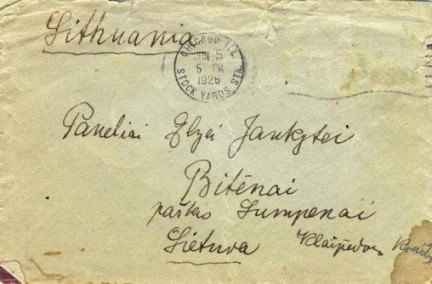 Lithuania
CHICAGO, ILL.
JUN 5
5 PM
1926
STOCK YARDS STA.
Paneliai Elzei Jankytei
Bitėnai
paštas Lumpėnai
Lietuva Klaipėdos